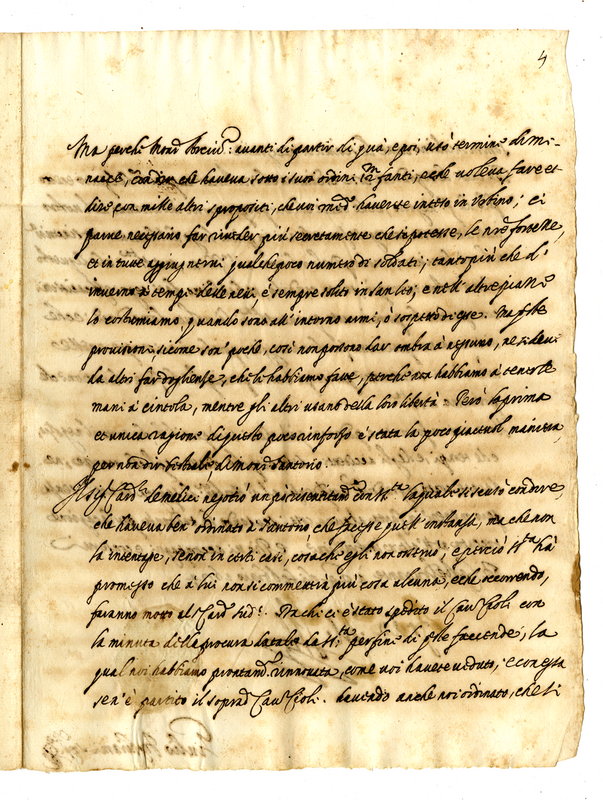 4
Ma perche Mons.r avanti di partir di quà, e poi, usò termine di mi-
naccie, che haveva sotto i suoi ordini fanti, e che voleva fare et
dire con mille altri spropositi, che voi med.o haverete inteso in Urbino; ci
parve necess.o far riveder più secretamente che si potesse, le nr̃e fortezze,
et in tutte aggiungervi qualche poco numero di soldati; tanto più che d'
inverno à tempi delle nevi, è sempre solito in San Leo; e nell'altre
lo costumiamo, quando sono all'intorno armi, ò sospetto di esse. Ma q.ste
provisioni, sicome son' poche, così non possono dar ombra à nessuno, ne si deve
da altri far doglienze, che le habbiamo fatte, perche non habbiamo à tener le
mani à cintola, mentre gli altri usano della loro libertà. Però la prima
et unica ragione di questo poco rinforzo è stata la poco giusta maniera,
per non dir di Mons. Santorio.
Il S.r Card.l de Medici negotiò con S. S.tà la quale si scusò con dire,
che haveva ben' ordinato à Santorio che facesse quell' instanza, ma che non
la intentasse, se non in certi casi, cosa che egli non osservò, e perciò S. S.tà hà
promesso che à lui non si commetterà più cosa alcuna, e che occorrendo,
faranno motto al S.r Card. sud.o. Di là ci è stato spedito il Cav. Cioli con
la minuta della procura data le da S. S.tà per fine di q.ste faccende, la
qual noi habbiamo prontam.te rinnovata, come voi havete veduto, e con essa
se n'è partito il soprad.o Cav. Cioli. havendo anche noi ordinato, che si